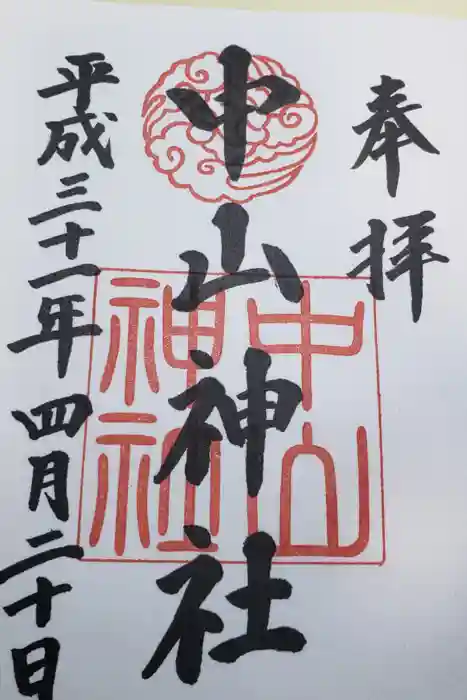 奉拝
中山神社
中山
神社
平成三十一年四月二十日